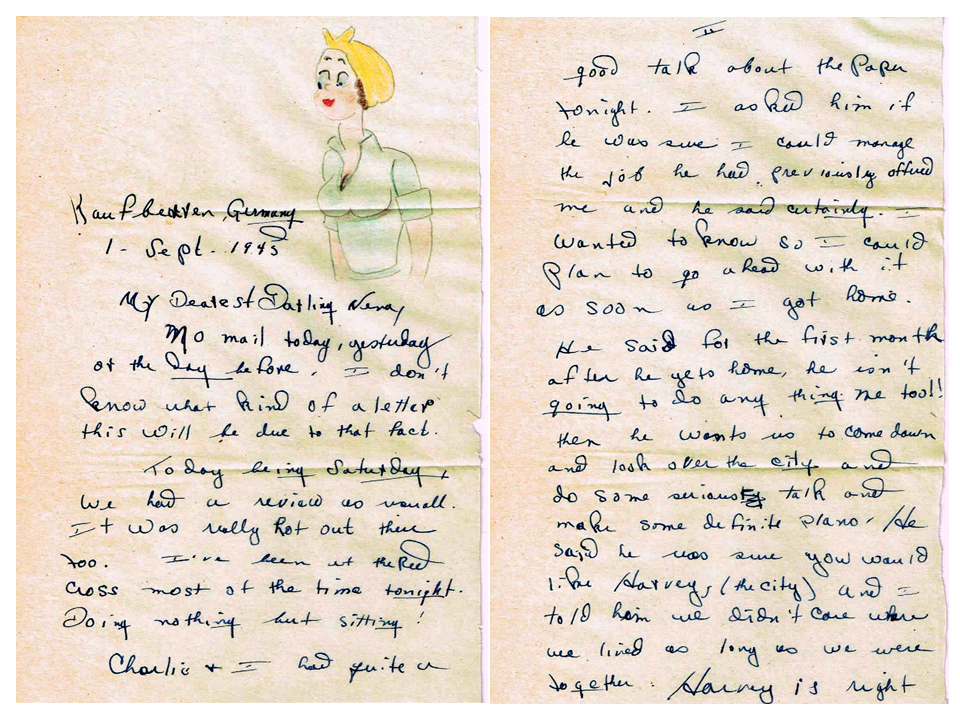 Kaufbeuren, Germany
1 - Sept. 1945
My Dearest Darling Nena,
No mail today, yesterday
or the day before. I don't
know what kind of a letter
this will be due to that fact.
Today being Saturday,
we had a review as usuall.
It was really hot out there
too. I've been at the Red
Cross most of the time tonight.
Doing nothing but sitting!
Charlie & I had quite a
II
good talk about the Paper
tonight. I asked him if
he was sure I could manage
the job he had previously offered
me and he said certainly. I
wanted to know so I could
Plan to go ahead with it
as soon as I got home.
He said for the first month
after he gets home, he isn't
going to do any thing. Me too!!
then he wants us to come down
and look over the city and
do some serious talk and
make some definite plans. He
said he was sure you would
like Harvey, (the city) and I
told him we didn't care where
we lived as long as we were
together. Harvey is right